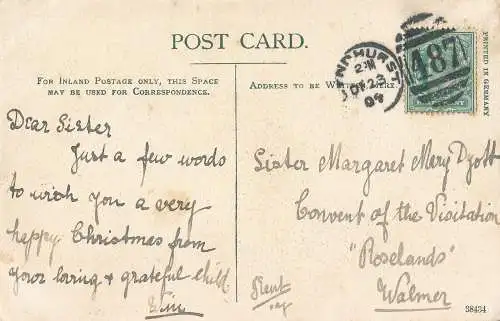 POST CARD.
FOR INLAND POSTAGE ONLY, THIS SPACE
MAY BE USED FOR CORRESPONDENCE.
Dear Sister
Just a few words
to wish you a very
happy Christmas from
your loving & grateful child
ADDRESS TO BE
LYNDHURST
DE 23
04
487
PRINTED IN GERMANY.
Sister Margaret Mary Dyott
Convent of the Visitation
"Roselands"
Walmer
Kent
38434